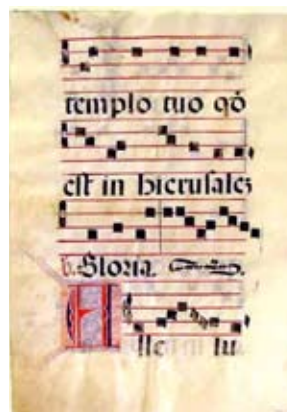 templo tuo qđ
est in hierusalez
Gloria.
lu